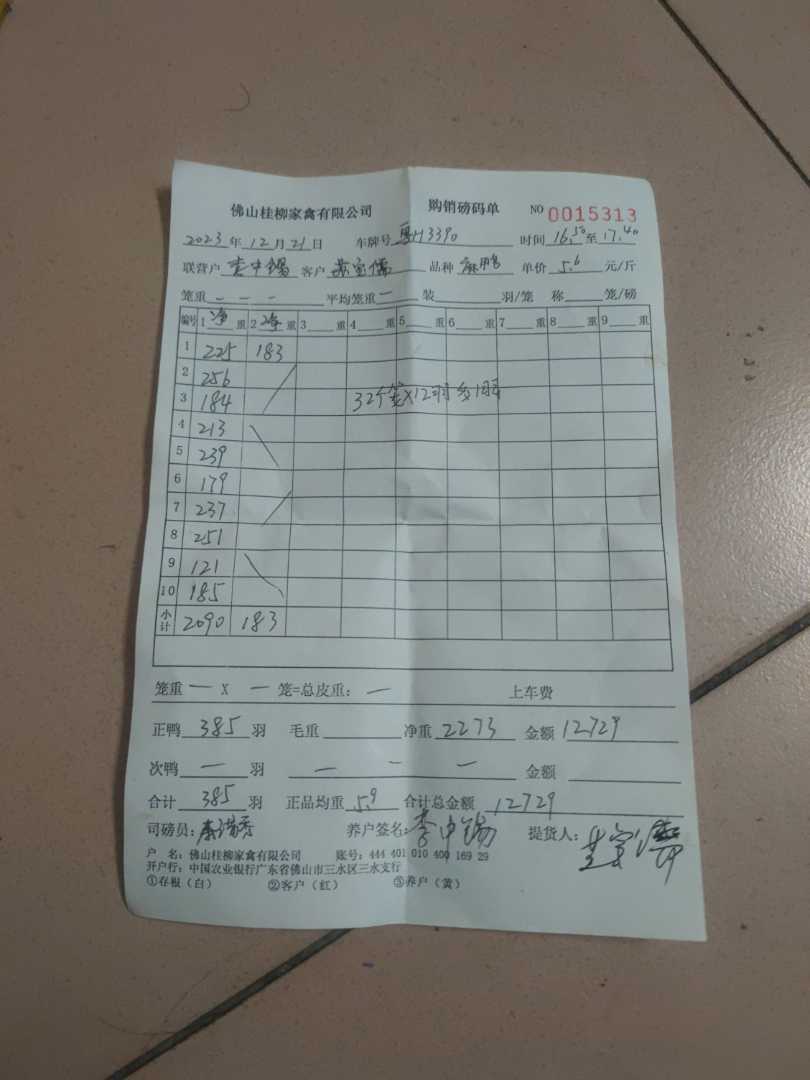 佛山桂柳家禽有限公司 购销磅码单 NO 0015313
2023年12月21日 车牌号 粤M3390 时间 16.50至17.40
联营户 李中锡 客户 品种 麻鸭 单价 5.6 元/斤
笼重 — — — 平均笼重 — 装 羽/笼 称 笼/磅
编号 1 净 重 2 净 重 3 重 4 重 5 重 6 重 7 重 8 重 9 重
1 225 183
2 256
3 184 32个笼×12羽 1羽
4 213
5 239
6 179
7 237
8 251
9 121
10 185
小计 2090 183
笼重 — X — 笼=总皮重: — 上车费
正鸭 385 羽 毛重 净重 2273 金额 12729
次鸭 — 羽 — — — 金额
合计 385 羽 正品均重 5.9 合计总金额 12729
司磅员: 养户签名: 李中锡 提货人:
户 名: 佛山桂柳家禽有限公司 账号: 444 401 010 400 169 29
开户行: 中国农业银行广东省佛山市三水区三水支行
①存根(白) ②客户(红) ③养户(黄)